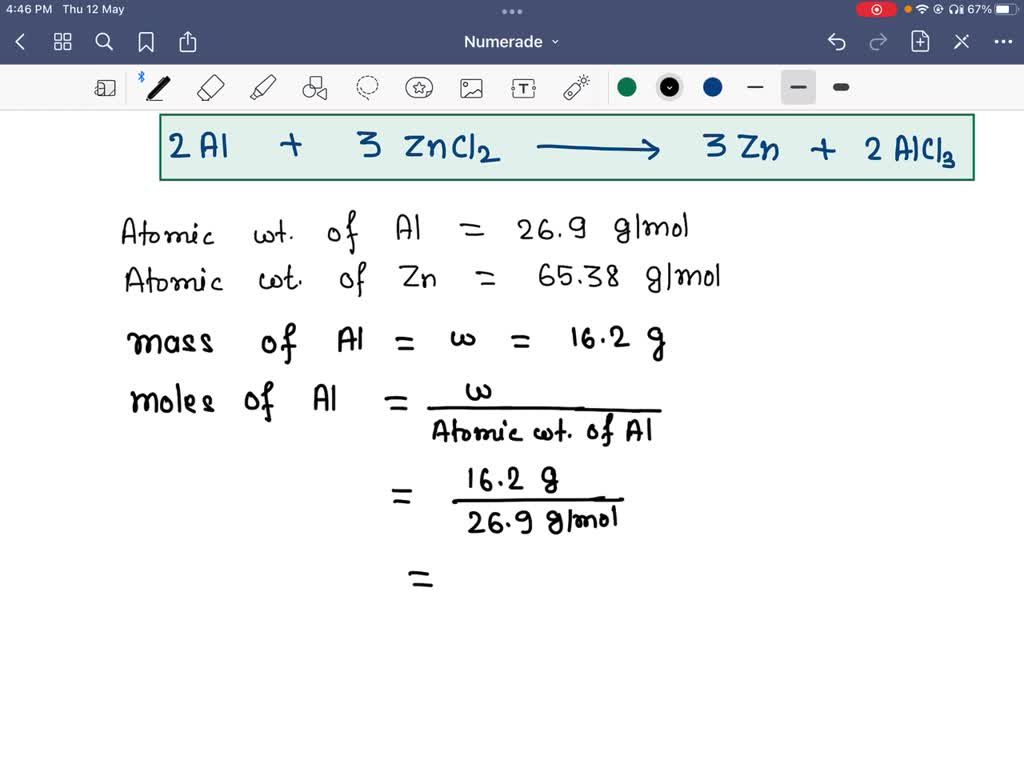 4:46 PM Thu 12 May 67%
Numerade
2 Al + 3 ZnCl2 ⟶ 3 Zn + 2 AlCl3
Atomic wt. of Al = 26.9 g/mol
Atomic wt. of Zn = 65.38 g/mol
mass of Al = w = 16.2 g
moles of Al = w
Atomic wt. of Al
= 16.2 g
26.9 g/mol
=